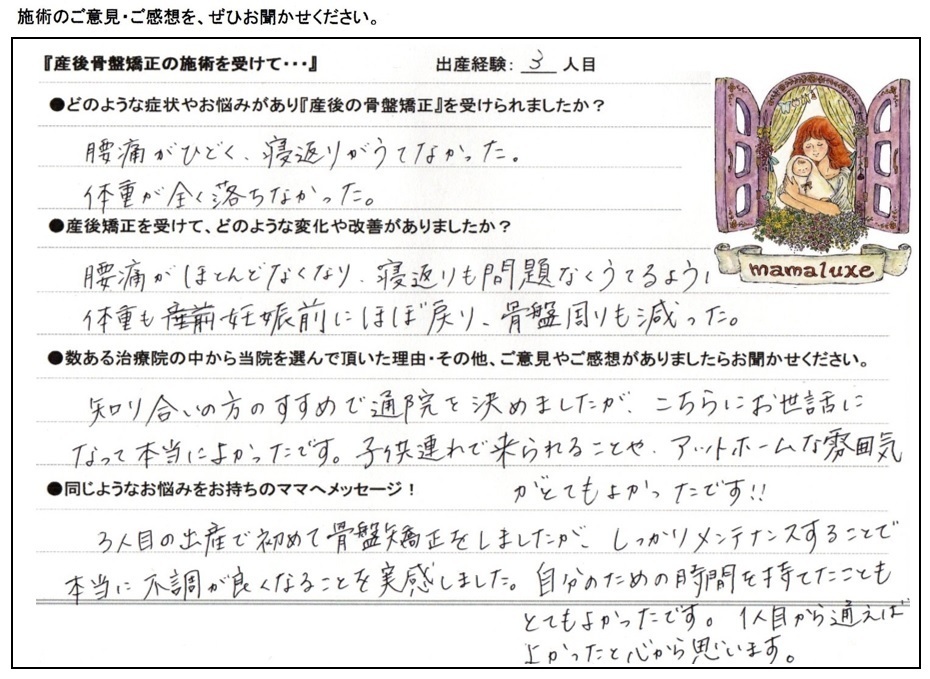 施術のご意見・ご感想を、ぜひお聞かせください。
『産後骨盤矯正の施術を受けて・・・』 出産経験： 3 人目
●どのような症状やお悩みがあり『産後の骨盤矯正』を受けられましたか？
腰痛がひどく、寝返りがうてなかった。
体重が全く落ちなかった。
●産後矯正を受けて、どのような変化や改善がありましたか？
腰痛がほとんどなくなり、寝返りも問題なくうてるように
体重も妊娠前にほぼ戻り、骨盤周りも減った。
mamaluxe
●数ある治療院の中から当院を選んで頂いた理由・その他、ご意見やご感想がありましたらお聞かせください。
知り合いの方のすすめで通院を決めましたが、こちらにお世話に
なって本当によかったです。子供連れで来られることや、アットホームな雰囲気
がとてもよかったです!!
●同じようなお悩みをお持ちのママへメッセージ！
3人目の出産で初めて骨盤矯正をしましたが、しっかりメンテナンスすることで
本当に不調が良くなることを実感しました。自分のための時間を持てたことも
とてもよかったです。1人目から通えば
よかったと心から思います。